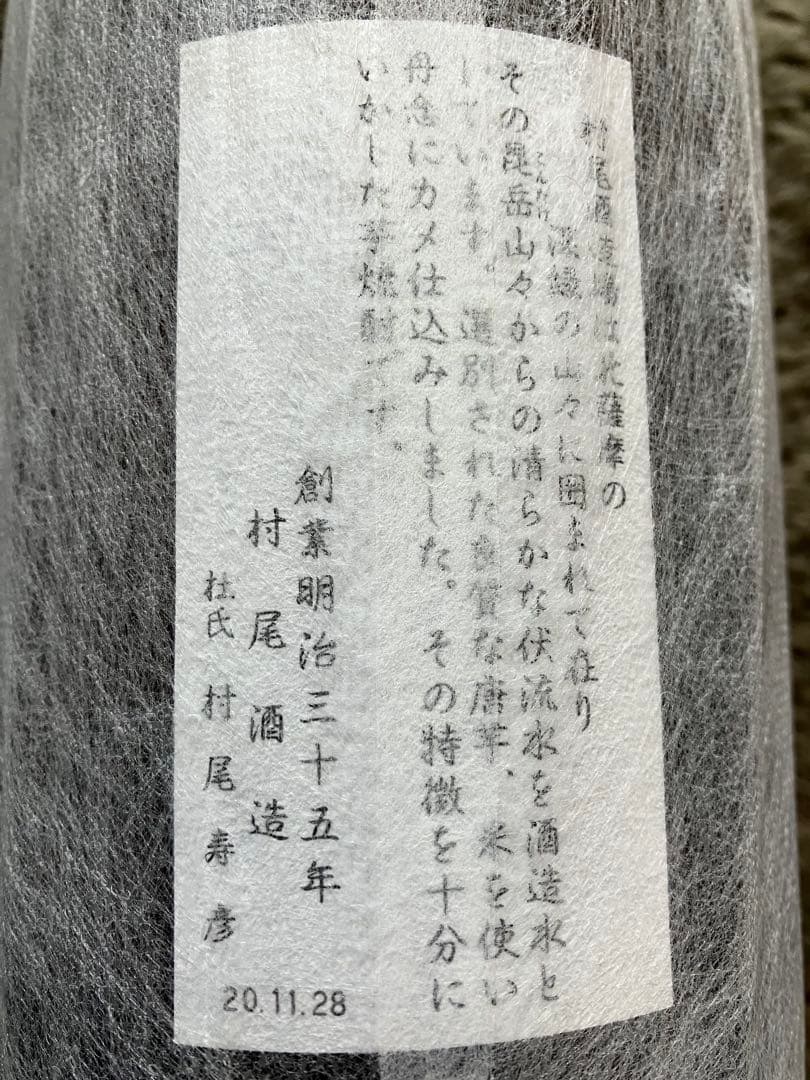 村尾酒造場は北薩摩の
深緑の山々に囲まれて在り
その昆岳山々からの清らかな伏流水を酒造水と
しています。選別された良質な唐芋、米を使い
丹念にカメ仕込みしました。その特徴を十分に
いかした芋焼酎です。
創業明治三十五年
村尾酒造
杜氏 村尾寿彦
20.11.28